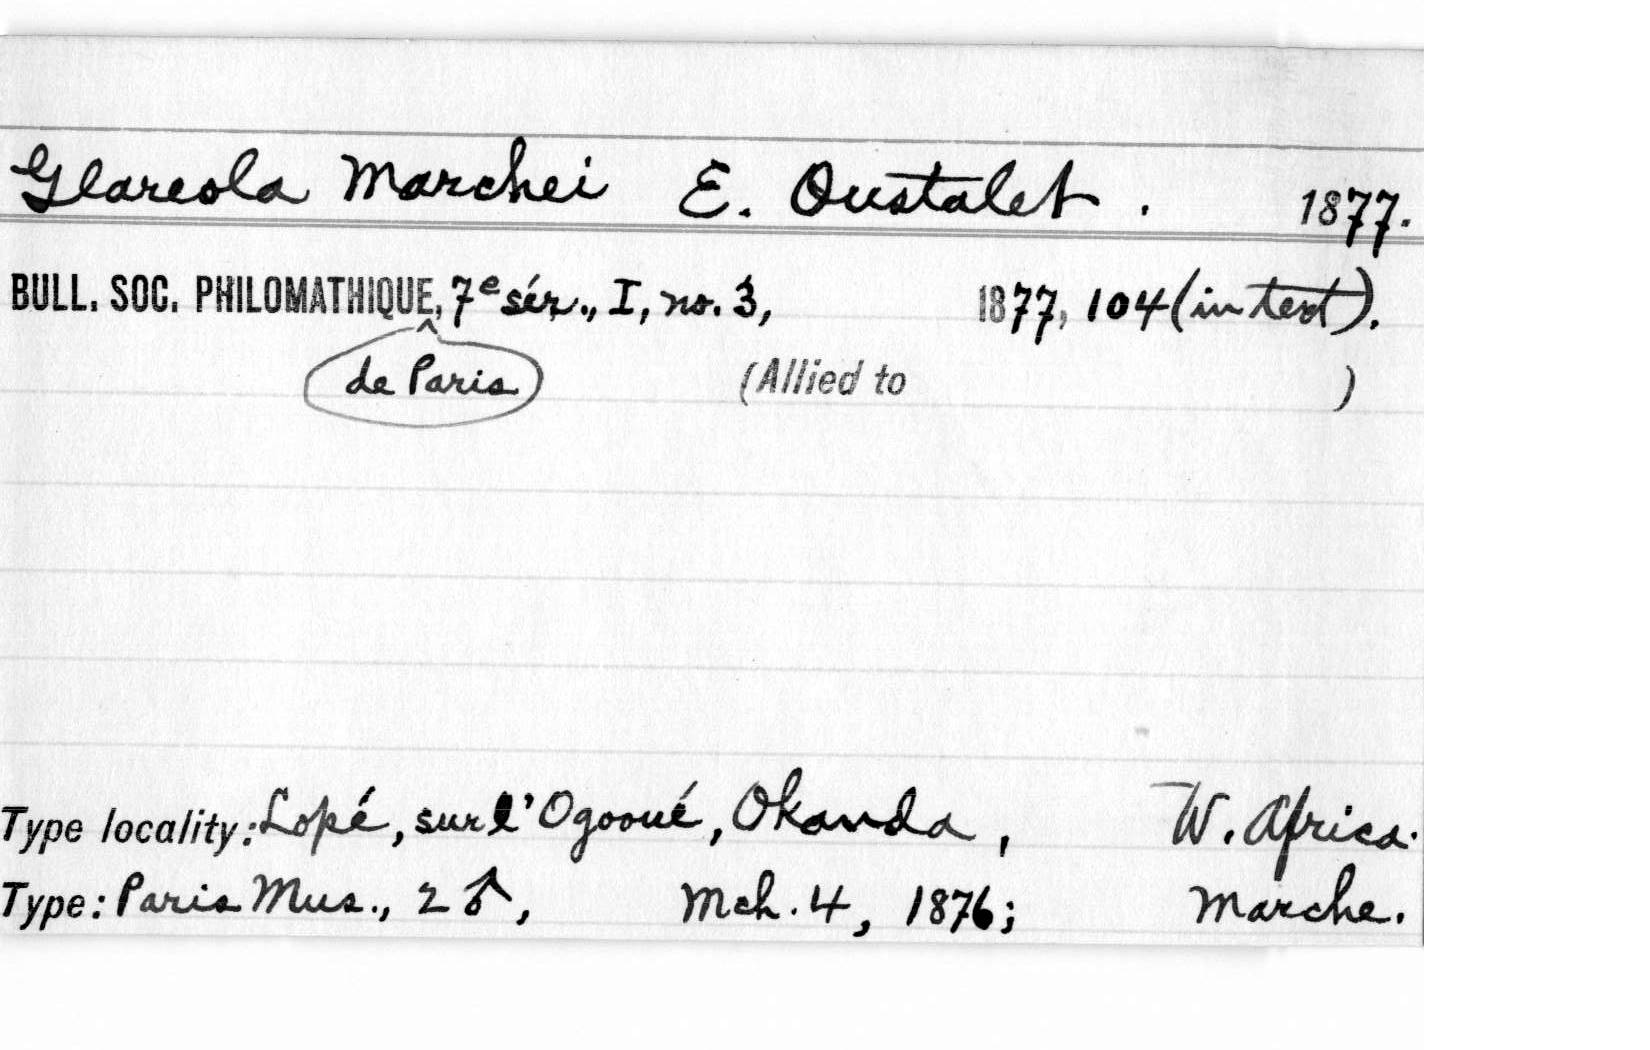 Glareola Marchei E. Oustalet. 1877.
BULL. SOC. PHILOMATHIQUE, 7e sér., I, no. 3, 1877, 104 (in text).
^ de Paris (Allied to )
Type locality: Lopé, sur l'Ogooué, Okanda, W. Africa.
Type: Paris Mus., 2 ♂, Mch. 4, 1876; Marche.